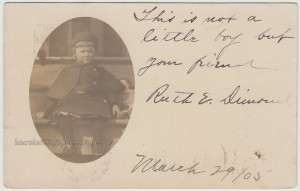 This is not a
little boy but
your friend
Ruth E. Dimond
March 29/05